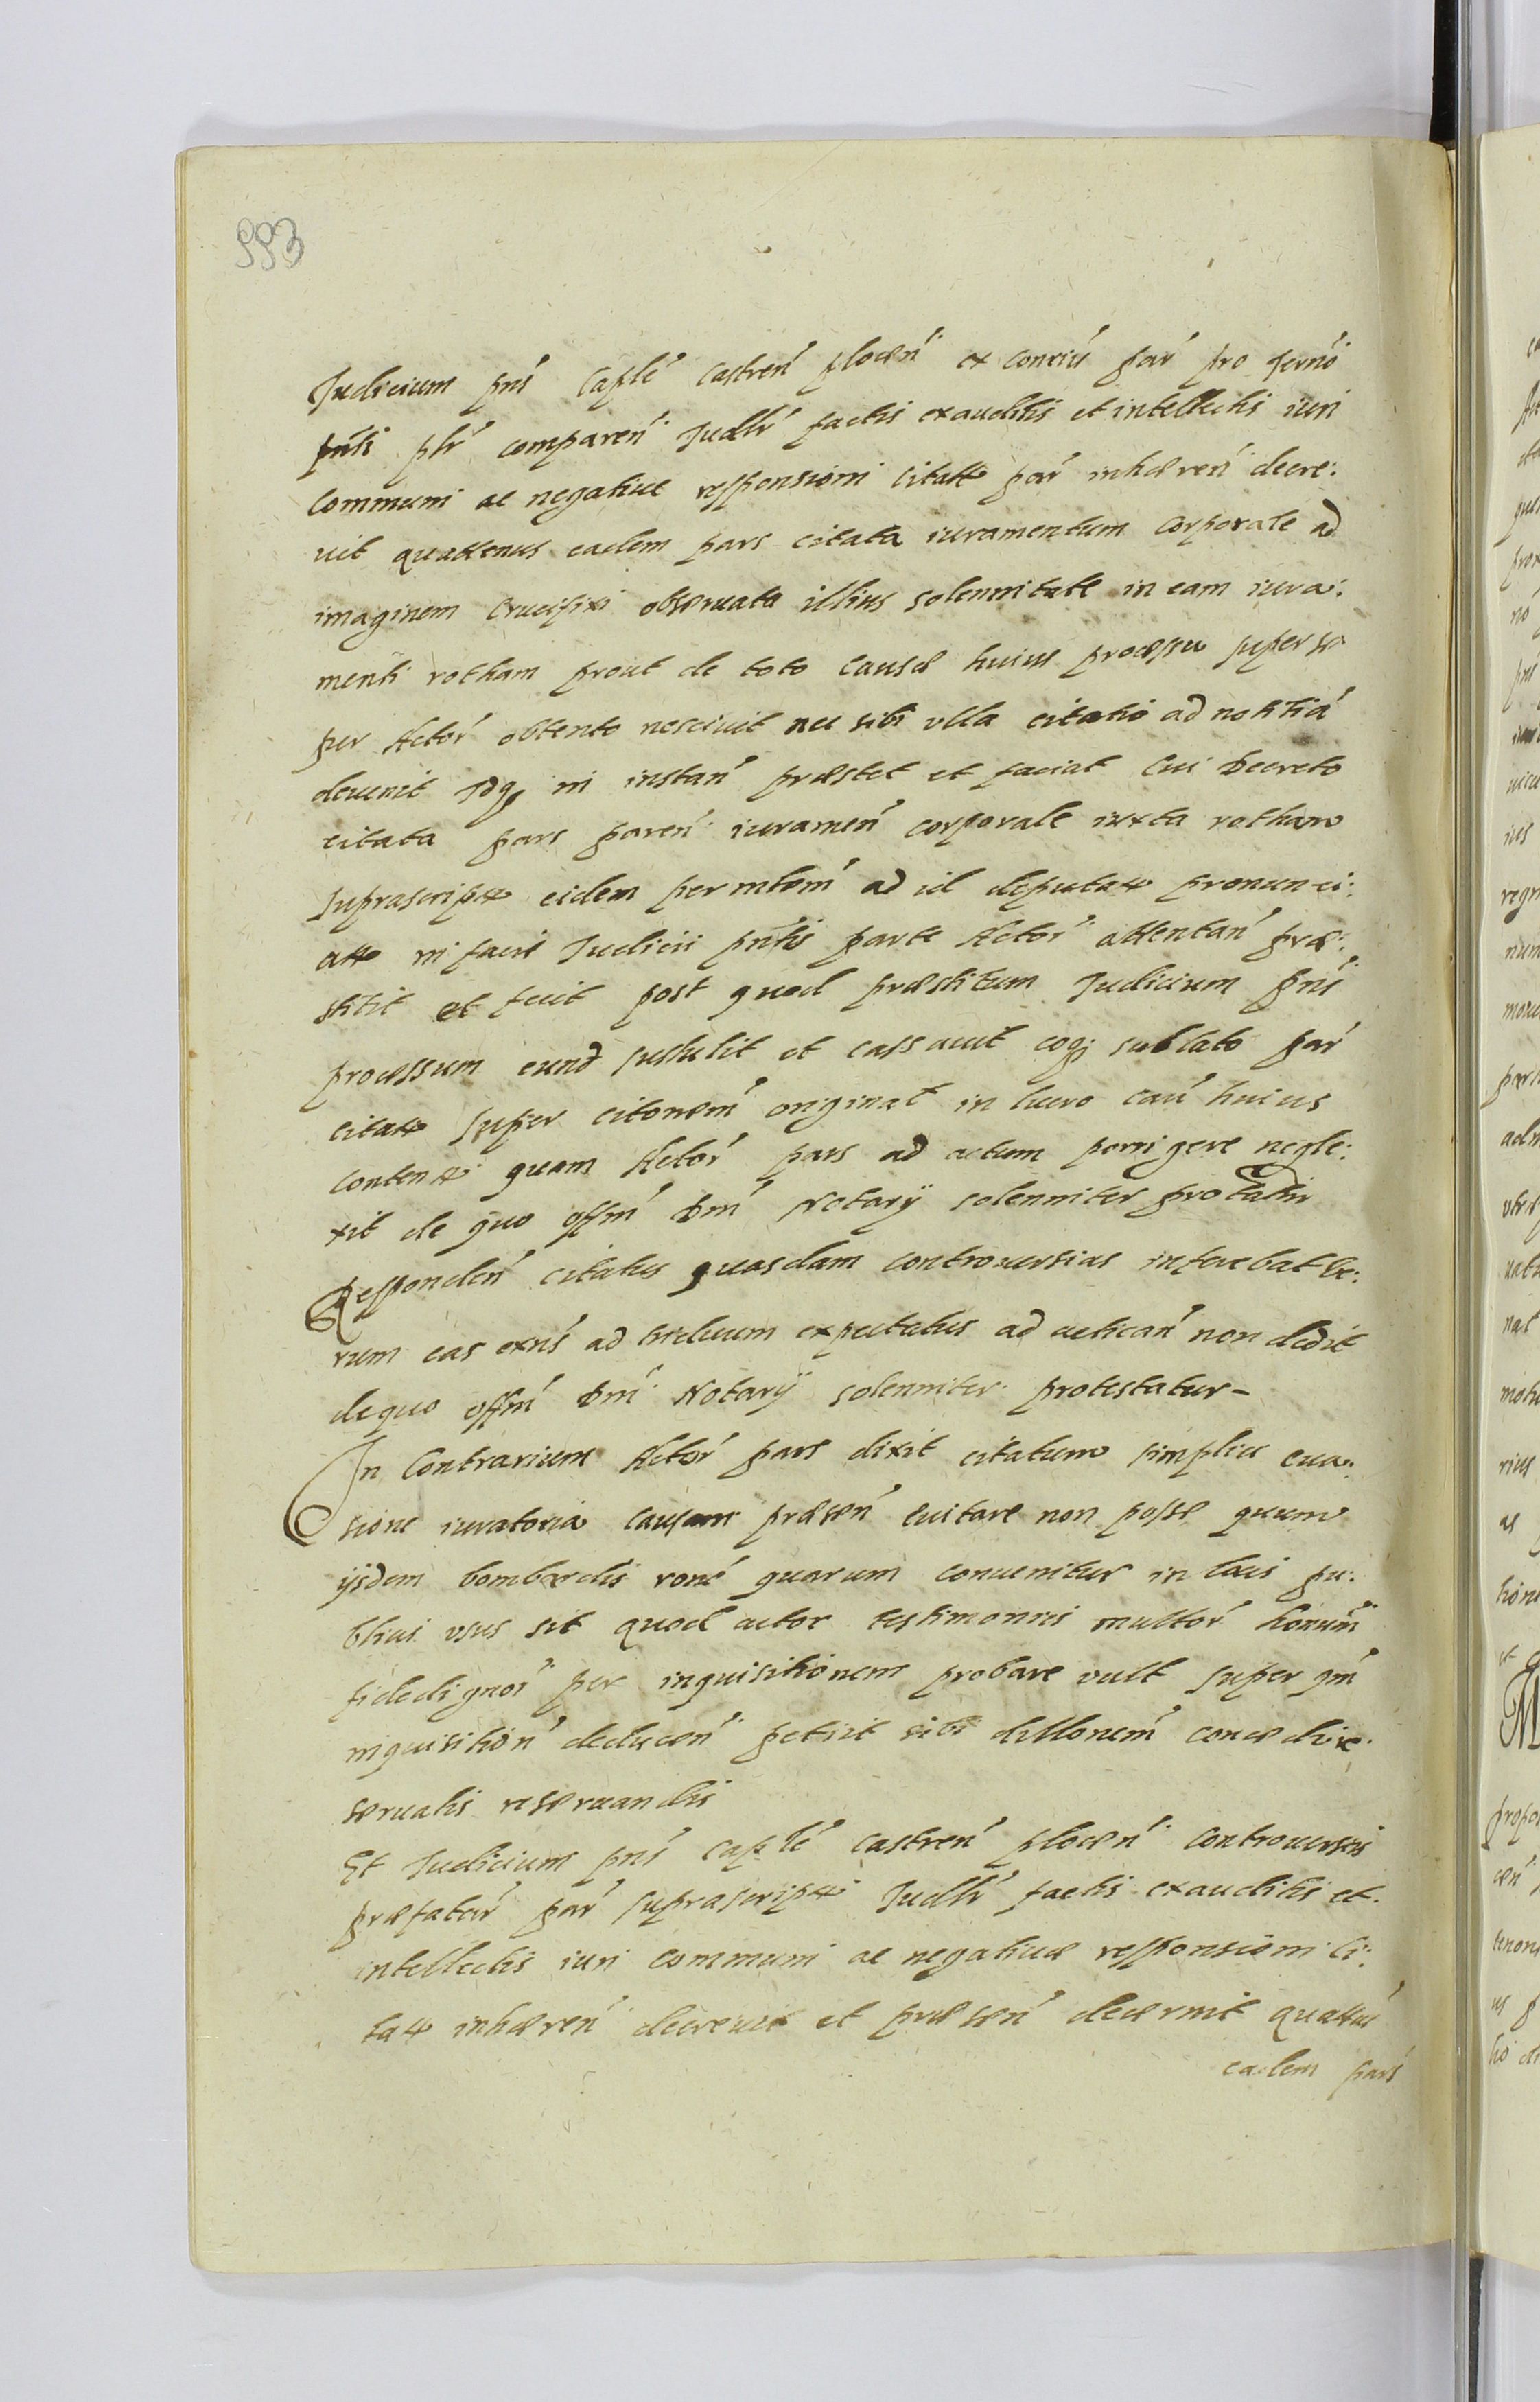 993
Judicium pns Caplé castren plocen ex contriis par pro termo
pnti plr comparen Judlr factis exauditis et intellectis iuri
communi ac negativae responsioni citatt par inhæren decre:
vit quattenus eadem pars citata iuramentum corporale ad
imaginem crucifixi observata illius solennitate in eam iura:
menti rotham prout de toto causæ huius processu super se
per Actor obtento nescivit nec sibi ulla citatio ad notitia
devenit Idq in instan præstet et faciat Cui Decreto
citata pars paren iuramen corporale iuxta rotham
suprascript eidem per mlem ad id deputatt pronunci:
att in facie Judicii pntis parte Actor attentan præ:
stitit et fecit post quod præstitum Judicium pns
processum eund sustulit et cassavit eoq sublato par
citatt super citonem original in lucro cau huius
content quam Actor pars ad actum porrigere negle:
xit de quo offm Dni Notarÿ solenniter protatur
Responden citatus quasdam controversias inferebat ve:
rum eas exns ad triduum expectatus ad actican non dedit
de quo offm Dni Notarÿ solenniter protestatur –
In Contrarium Actor pars dixit citatum simplici eva:
sione iuratoria causam præsen evitare non posse quum
ijsdem bombardis rone quarum convenitur in locis pu:
blicis usus sit quod actor testimoniis multor honum
fidedignor per inquisitionem probare vult super qm
inquisition deducen petiit sibi dillonem concedi re:
servatis reservandis
Et Judicium pns caplé castren plocen controversiis
præfatar par suprascript Judlr factis exauditis et
intellectis iuri communi ac negativæ responsioni ci:
tatt inhæren decrevit et præsen decernit quatten
eadem pars